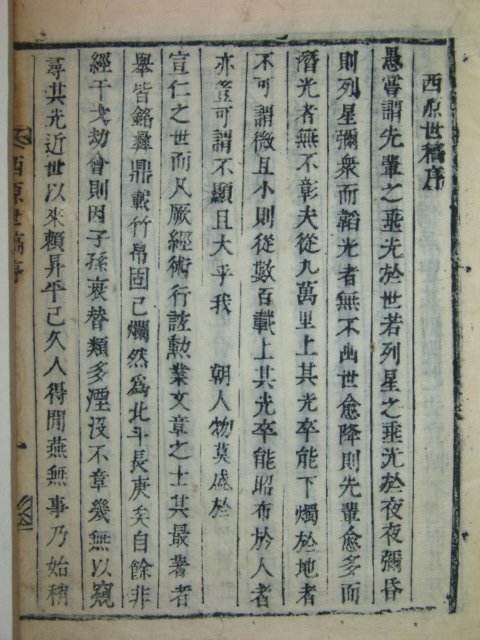 西原世稿序
愚嘗謂先軰之垂光於世若列星之垂光於夜夜彌昏
則列星彌衆而韜光者無不幽世愈降則先軰愈多而
潛光者無不彰夫從九萬里上其光卒能下燭於地者
不可謂微且小則從數百載上其光卒能昭布於人者
亦豈可謂不顯且大乎我 朝人物莫盛於
宣仁之世而凡厥經術行誼勳業文章之士其最著者
舉皆銘彝鼎載竹帛固已爛然爲北斗長庚矣自餘非
經干戈劫會則因子孫衰替類多湮没不章幾無以窺
尋其光近世以來賴昇平已久人得閒燕無事乃始稍
西原世稿序